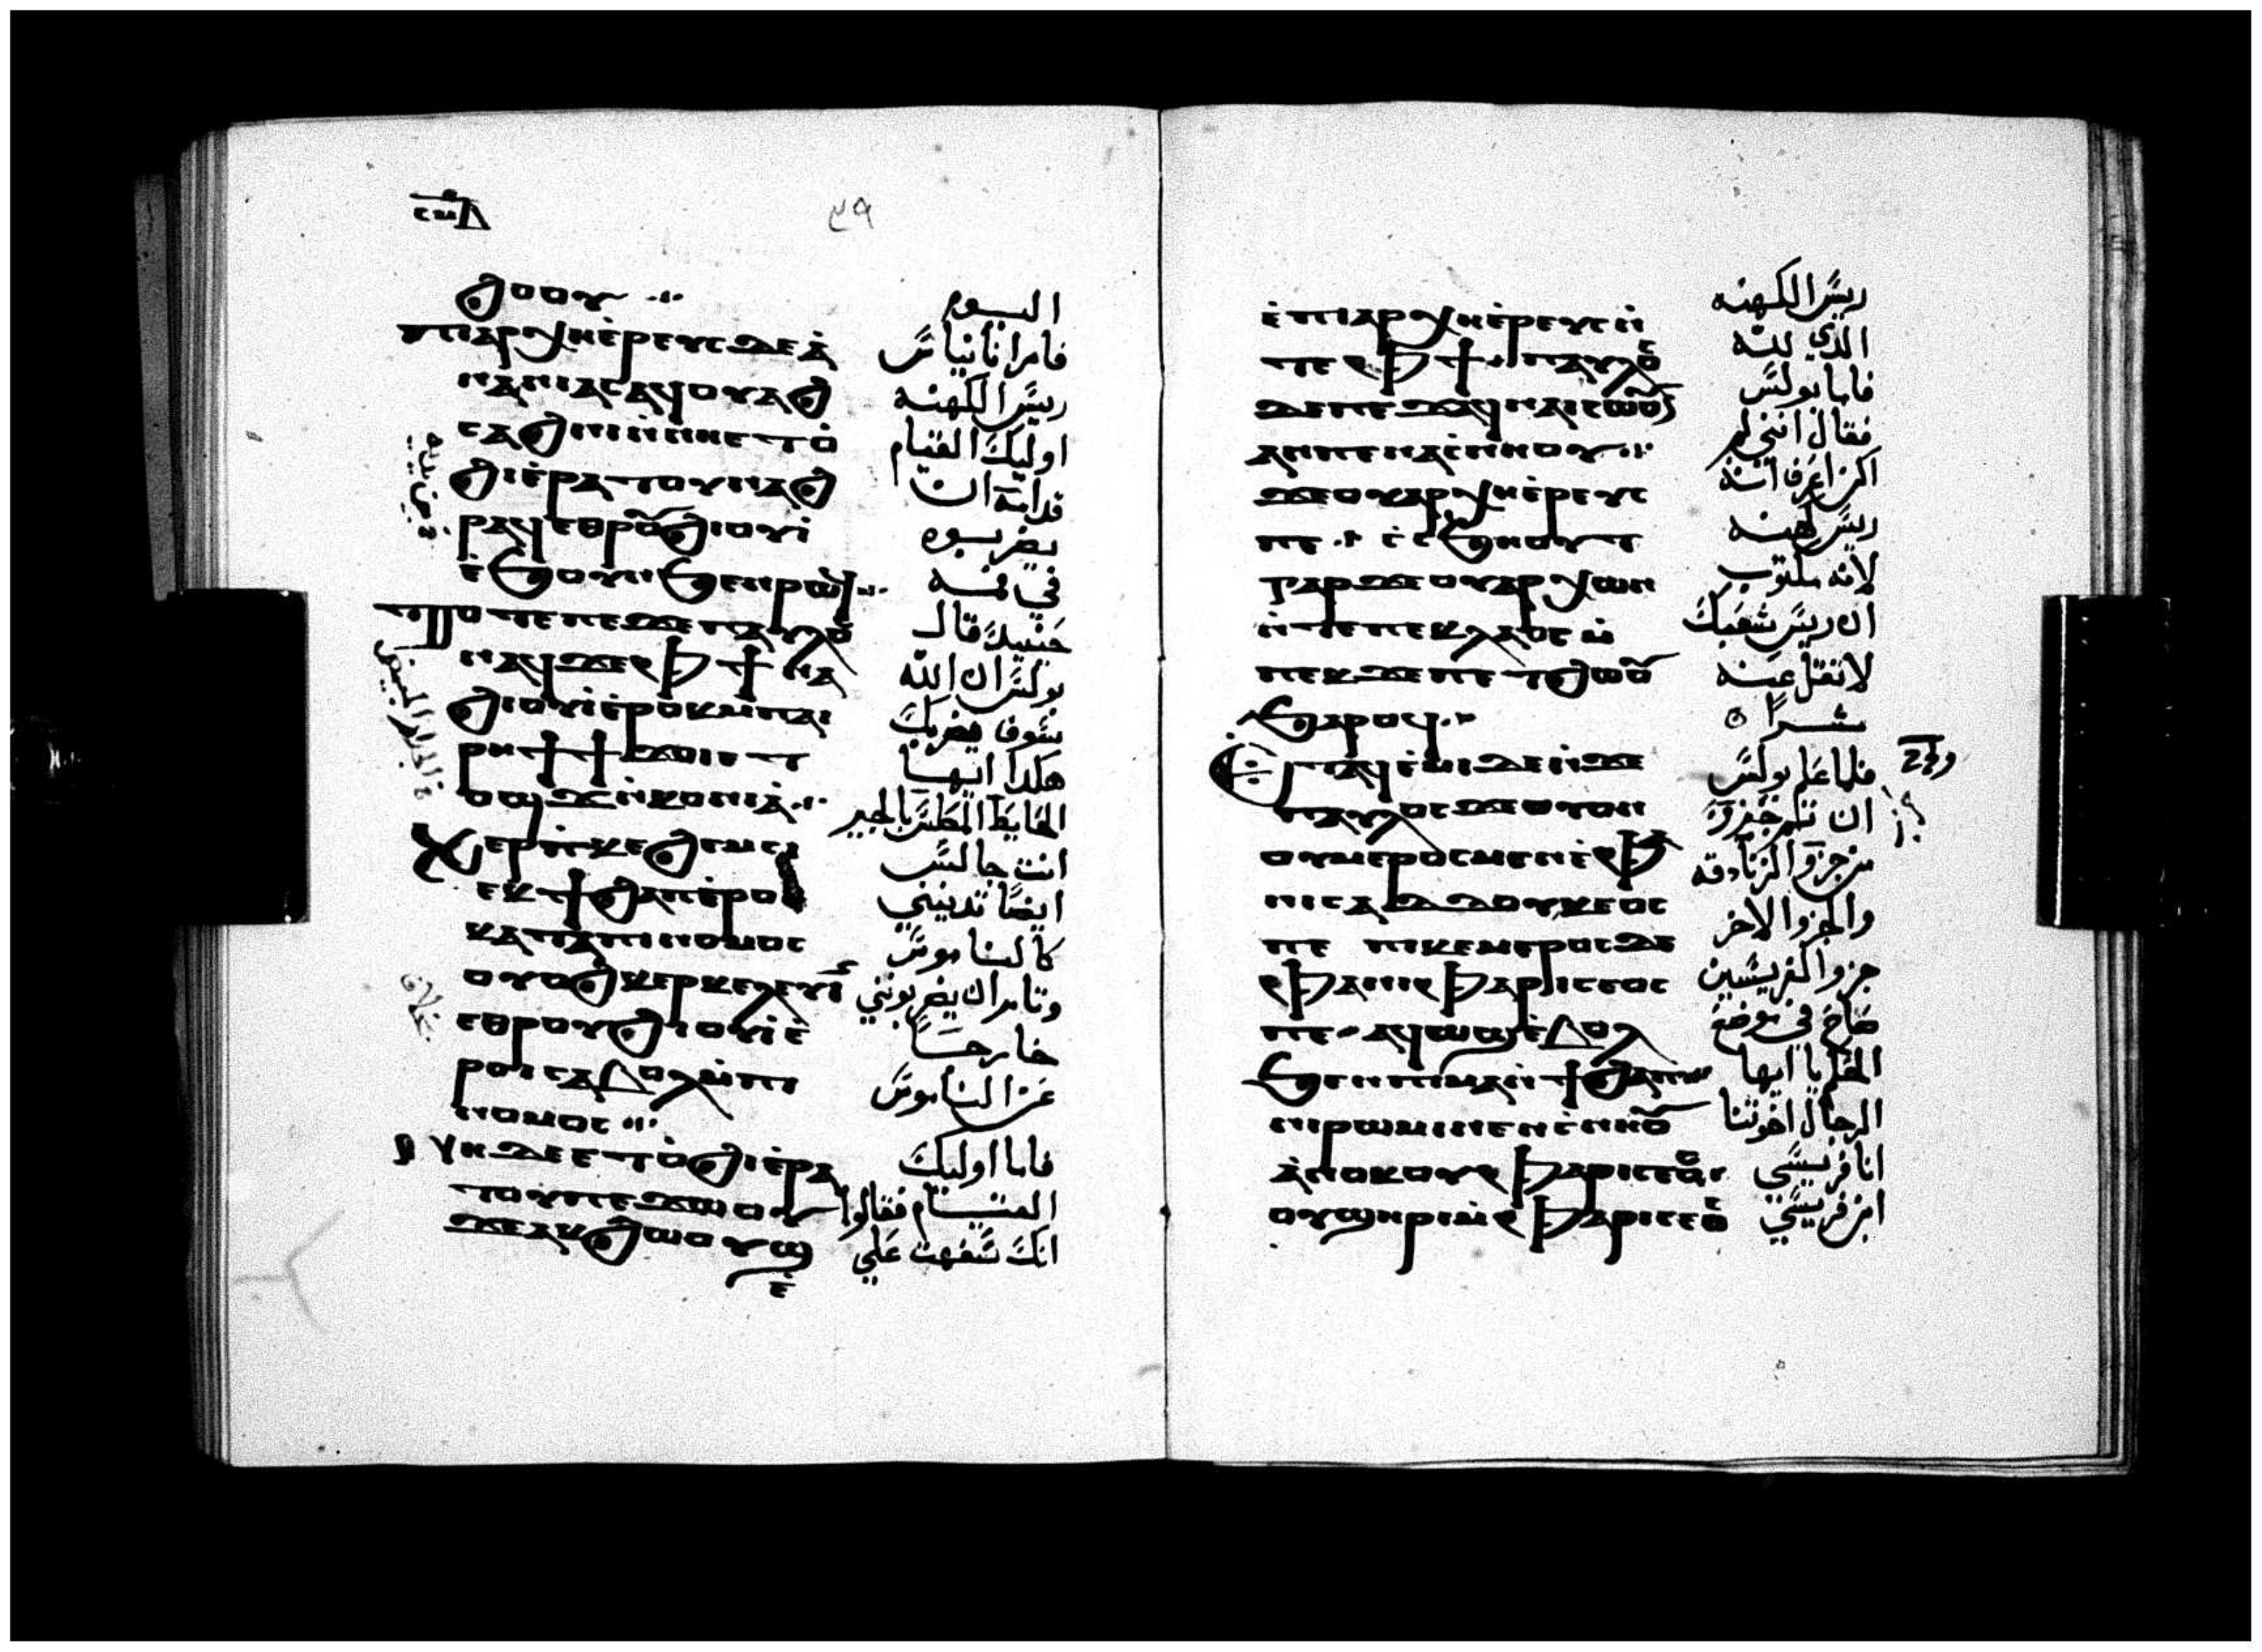 ϩⲟⲟⲩ
ⲡⲓⲁⲣⲭⲏⲉⲣⲉⲩⲥ ⲇⲉ ⲁ
ⲛⲁⲛⲓⲁⲥ ⲁϥⲟⲩⲁϩ
ⲥⲁϩⲛⲓ ⲛⲛⲏⲉⲧⲟ
ϩⲓ ⲉⲣⲁⲧⲟⲩ ⲛⲁϩ
ⲣⲁϥ ⲉⲑⲣⲟⲩϩⲓⲟⲩⲓ
ⲉϧⲟⲩⲛ ϧⲉⲛ ⲣⲱϥ
ⲧⲟⲧⲉ ⲡⲉϫⲉ ⲡⲁⲩⲗⲟⲥ
ⲛⲁϥ ϫⲉ ⲫϯ ⲛⲁ
ϩⲓⲟⲩⲓ ⲉⲣⲟⲕ ⲙⲡⲁⲓ
ⲣⲏϯ ϯϫⲟⲓ ⲉⲧ
ⲟϣϫ ⲛⲕⲟⲛⲓⲁ
ⲭⲉⲣⲡⲕⲉϩⲉⲙⲥⲓ
ⲉⲕϯϩⲁⲡ ⲉⲣⲟⲓ
ⲕⲁⲧⲁ ⲡⲓⲛⲟⲙⲟⲥ
ⲟⲩⲟϩ ⲕⲉⲣⲕⲉⲗⲉⲩⲓⲛ
ⲉⲑⲣⲟⲩϩⲓⲟⲩⲓ ⲉ
ⲣⲟⲓ ⲥⲁⲃⲟⲗ ⲙⲡⲓ
ⲛⲟⲙⲟⲥ
ⲛⲏ ⲇⲉ ⲉⲧⲟϩⲓ ⲉⲣⲁ
ⲧⲟⲩ ⲡⲉϫⲱⲟⲩ
ϫⲉ ⲁⲕϩⲱⲟⲩϣ
ⲉ
اليوم
فامر انانياس
ريس الكهنه
اوليك القيام
قدامه ان
يضربوه
في فمه
حينيد قال
بولس ان الله
سوف يضربك
هكدا ايها
الحايط المطلس بالجير
انت جالس
ايضا تدينني
كالناموس
وتامر ان يضربونني
خارجا
عن الناموس
فاما اوليك
القيام فقالوا
انك سفهت علي
ⲉⲡⲓⲁⲣⲭⲏⲉⲣⲉⲩⲥ ⲛ
ⲧⲉ ⲫϯ ⲡⲁⲩⲗⲟⲥ
ⲇⲉ ⲡⲉϫⲁϥ ⲛⲁⲓⲥⲱⲟⲩⲛ
ⲁⲛ ⲡⲉ ⲛⲁⲥⲛⲏⲟⲩ
ϫⲉ ⲟⲩⲁⲣⲭⲏⲉⲣⲉⲩⲥ
ⲡⲉ ⲥⲥϧⲏⲟⲩⲧ
ⲅⲁⲣ ϫⲉ ⲟⲩⲁⲣⲭⲱⲛ
ⲛⲧⲉ ⲡⲉⲕⲗⲁⲟⲥ ⲙ
ⲡⲉⲕϫⲉ ⲡⲉⲧϩⲱⲟⲩ
ϧⲁⲣⲟϥ
ⲉⲧⲁϥⲉⲙⲓ ⲇⲉ ⲛϫⲉ
ⲡⲁⲩⲗⲟⲥ ϫⲉ ⲟⲩⲟⲛ
ⲟⲩⲙⲉⲣⲟⲥ ⲙⲉⲛ ⲉⲫⲁ
ⲛⲓⲥⲁⲇⲇⲟⲩⲕⲉⲟⲥ
ⲡⲉ ⲡⲓⲕⲉⲙⲉⲣⲟⲥ ⲇⲉ
ⲫⲁⲛⲓⲫⲁⲣⲓⲥⲉⲟⲥ
ⲡⲉ ⲁϥⲱϣ ⲉⲃⲟⲗ
ϧⲉⲛ ⲡⲓⲙⲁⲛϯϩⲁⲡ
ⲛⲓⲣⲱⲙⲓ ⲛⲉⲛⲥⲛⲏⲟⲩ
ⲁⲛⲟⲕ ⲟⲩⲫⲁⲣⲓⲥⲉⲟⲥ
ⲟⲩϣⲏⲣⲓ ⲙⲫⲁⲣⲓⲥⲉⲟⲥ
ريس الكهنه
الدي لله
فاما بولس
فقال انني لم
اكن اعرف انه
ريس كهنه
لانه مكتوب
ان ريس شعبك
لا تقل عنه
شرا
فلما علم بولس
ان تم جزو
من جزو الزنادقه
والجزو الاخر
جزو الفريسيين
صاح في موضع
الحكم يا ايها
الرجال اخوتنا
انا فريسي
ابن فريسي